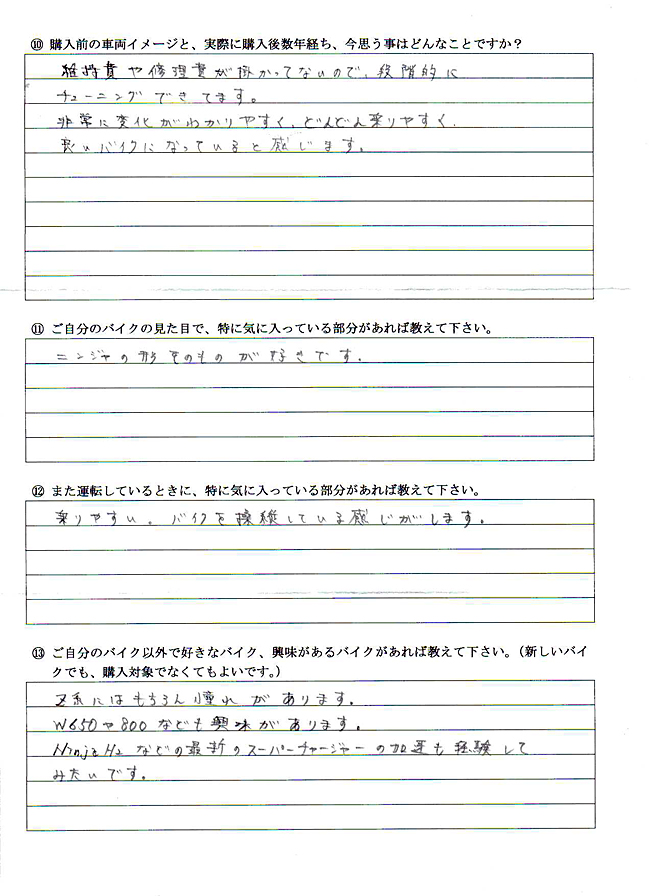 ⑩ 購入前の車両イメージと、実際に購入後数年経ち、今思う事はどんなことですか？
維持費や修理費が掛かってないので、段階的に
チューニングできてます。
非常に変化がわかりやすく、どんどん乗りやすく、
良いバイクになっていると感じます。
⑪ ご自分のバイクの見た目で、特に気に入っている部分があれば教えて下さい。
ニンジャの形そのものが好きです。
⑫ また運転しているときに、特に気に入っている部分があれば教えて下さい。
乗りやすい。バイクを操縦している感じがします。
⑬ ご自分のバイク以外で好きなバイク、興味があるバイクがあれば教えて下さい。（新しいバイ
クでも、購入対象でなくてもよいです。）
Z系にはもちろん憧れがあります。
W650や800なども興味があります。
NinjaH2などの最新のスーパーチャージャーの加速も経験して
みたいです。